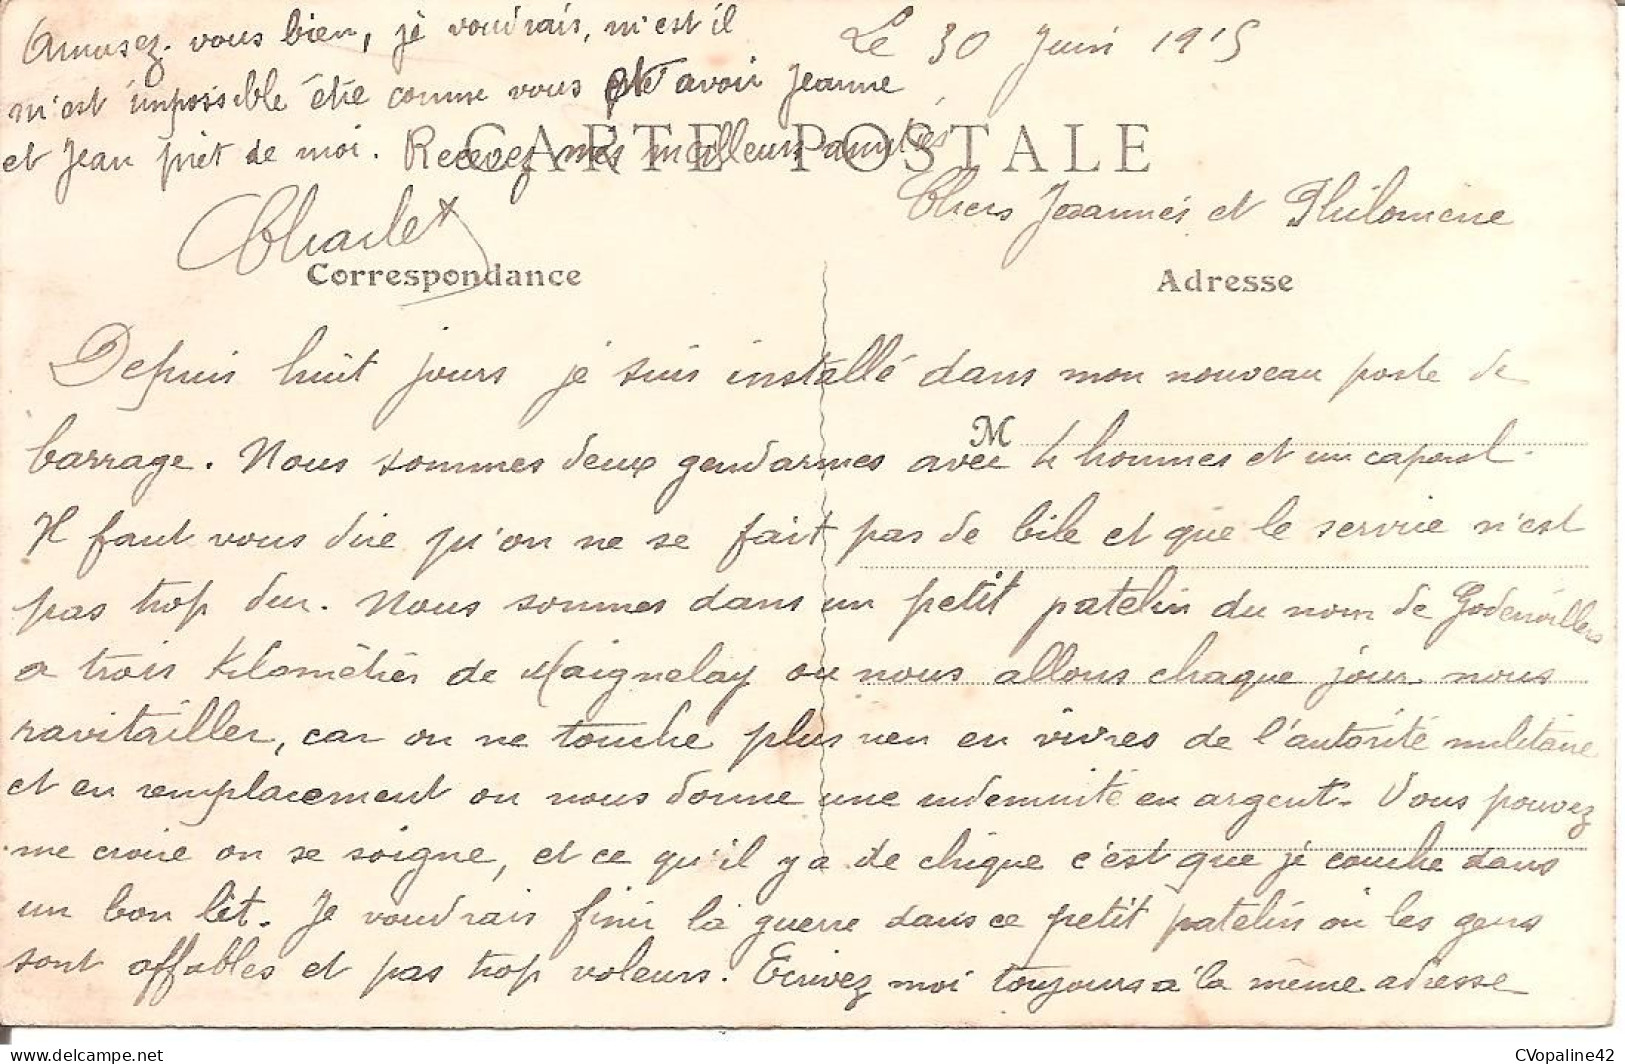 Le 30 Juin 1915
CARTE POSTALE
Chers Jeannès et Philomene
Correspondance
Adresse
M
Depuis huit jours je suis installé dans mon nouveau poste de
barrage. Nous sommes deux gendarmes avec 4 hommes et un caporal.
Il faut vous dire qu'on ne se fait pas de bile et que le service n'est
pas trop dur. Nous sommes dans un petit patelin du nom de Godenvillers
a trois kilomètres de Maignelay ou nous allons chaque jour nous
ravitailler, car on ne touche plus rien en vivres de l'autorité militaire
et en remplacement on nous donne une indemnité en argent. Vous pouvez
me croire on se soigne, et ce qu'il y a de chique c'est que je couche dans
un bon lit. Je voudrais finir la guerre dans ce petit patelin où les gens
sont affables et pas trop voleurs. Ecrivez moi toujours a la même adresse
Amusez-vous bien, je voudrais, m'est il
m'est impossible être comme vous et avoir Jeanne
et Jean prêt de moi. Recevez mes meilleurs amitiés
Charlet
CVopaline42